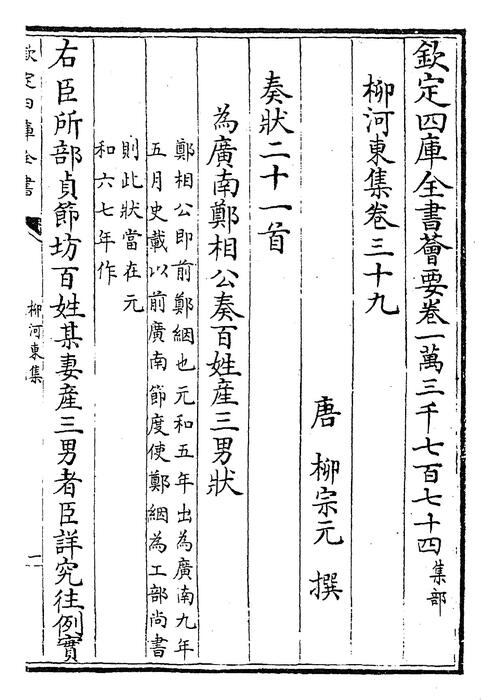 欽定四庫全書薈要卷一萬三千七百七十四集部
柳河東集卷三十九
唐柳宗元撰
奏狀二十一首
為廣南鄭相公奏百姓産三男狀
鄭相公即前鄭絪也元和五年出為廣南九年
五月史載以前廣南節度使鄭絪為工部尚書
則此狀當在元
和六七年作
右臣所部貞節坊百姓某妻産三男者臣詳究往例實
欽定四庫全書
柳河東集
一